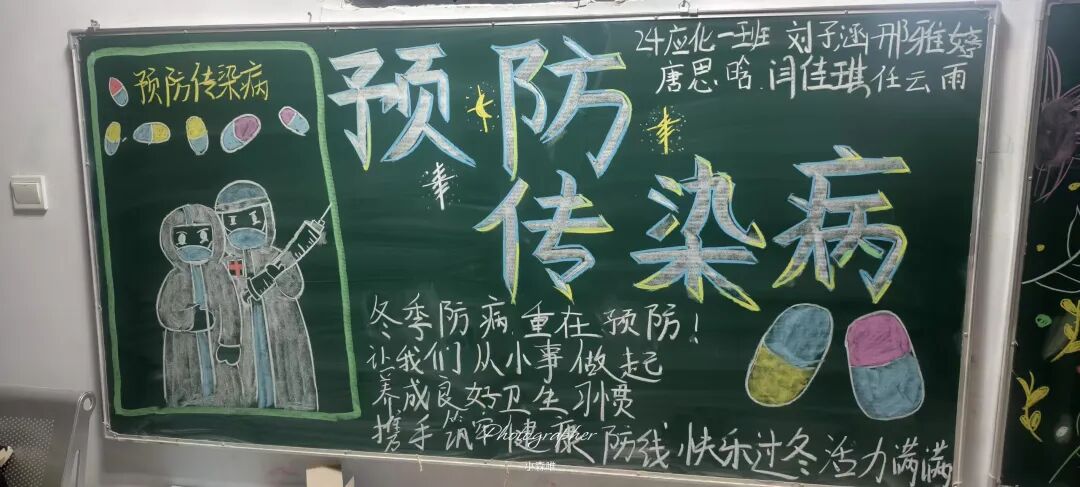 预防传染病
预防
传染病
24应化一班 刘子涵 邢雅婷
唐思晗 闫佳琪 任云雨
冬季防病,重在预防!
让我们从小事做起
养成良好卫生习惯
携手筑牢健康防线 快乐过冬 活力满满
Photographer
小霖唯